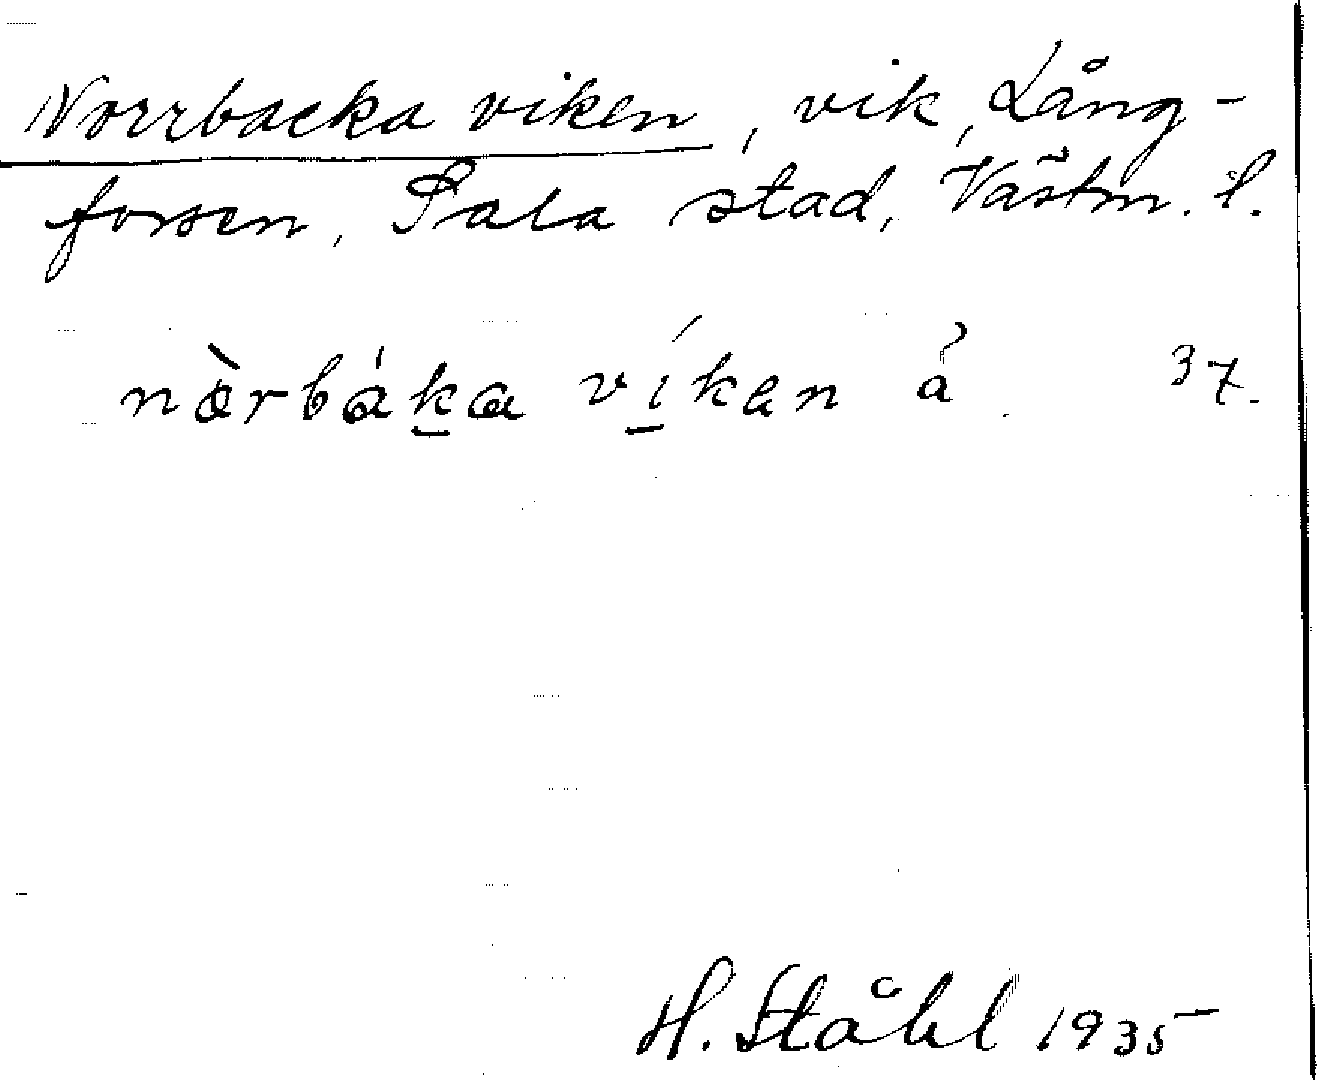 Norrbacka viken, vik, Lång-
forsen, Sala stad, Västm. l.
nòrbáka víken å 37.
H. Ståhl 1935